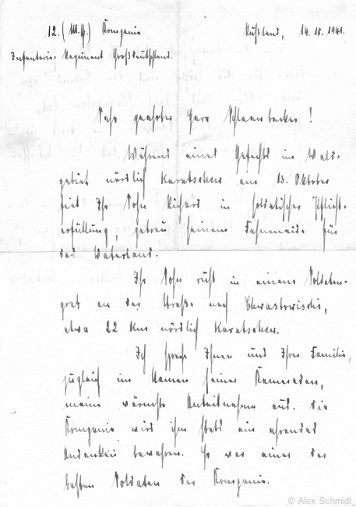 12. (M.G.) Kompanie Rußland, 14.10.1941.
Infanterie-Regiment Großdeutschland.
Sehr geehrter Herr !
Während eines Gefechts im Wald-
gebiet nördlich Karatschew am 13. Oktober
fiel Ihr Sohn Richard in soldatischer Pflicht-
erfüllung, getreu seinem Fahneneide für
das Vaterland.
Ihr Sohn ruht in einem Soldaten-
grab an der Straße nach Chwastowischi,
etwa 22 km nördlich Karatschew.
Ich spreche Ihnen und Ihrer Familie,
zugleich im Namen seiner Kameraden,
meine wärmste Anteilnahme aus. Die
Kompanie wird ihm stets ein ehrendes
Andenken bewahren. Er war einer der
besten Soldaten der Kompanie.
© Alex Schmidt